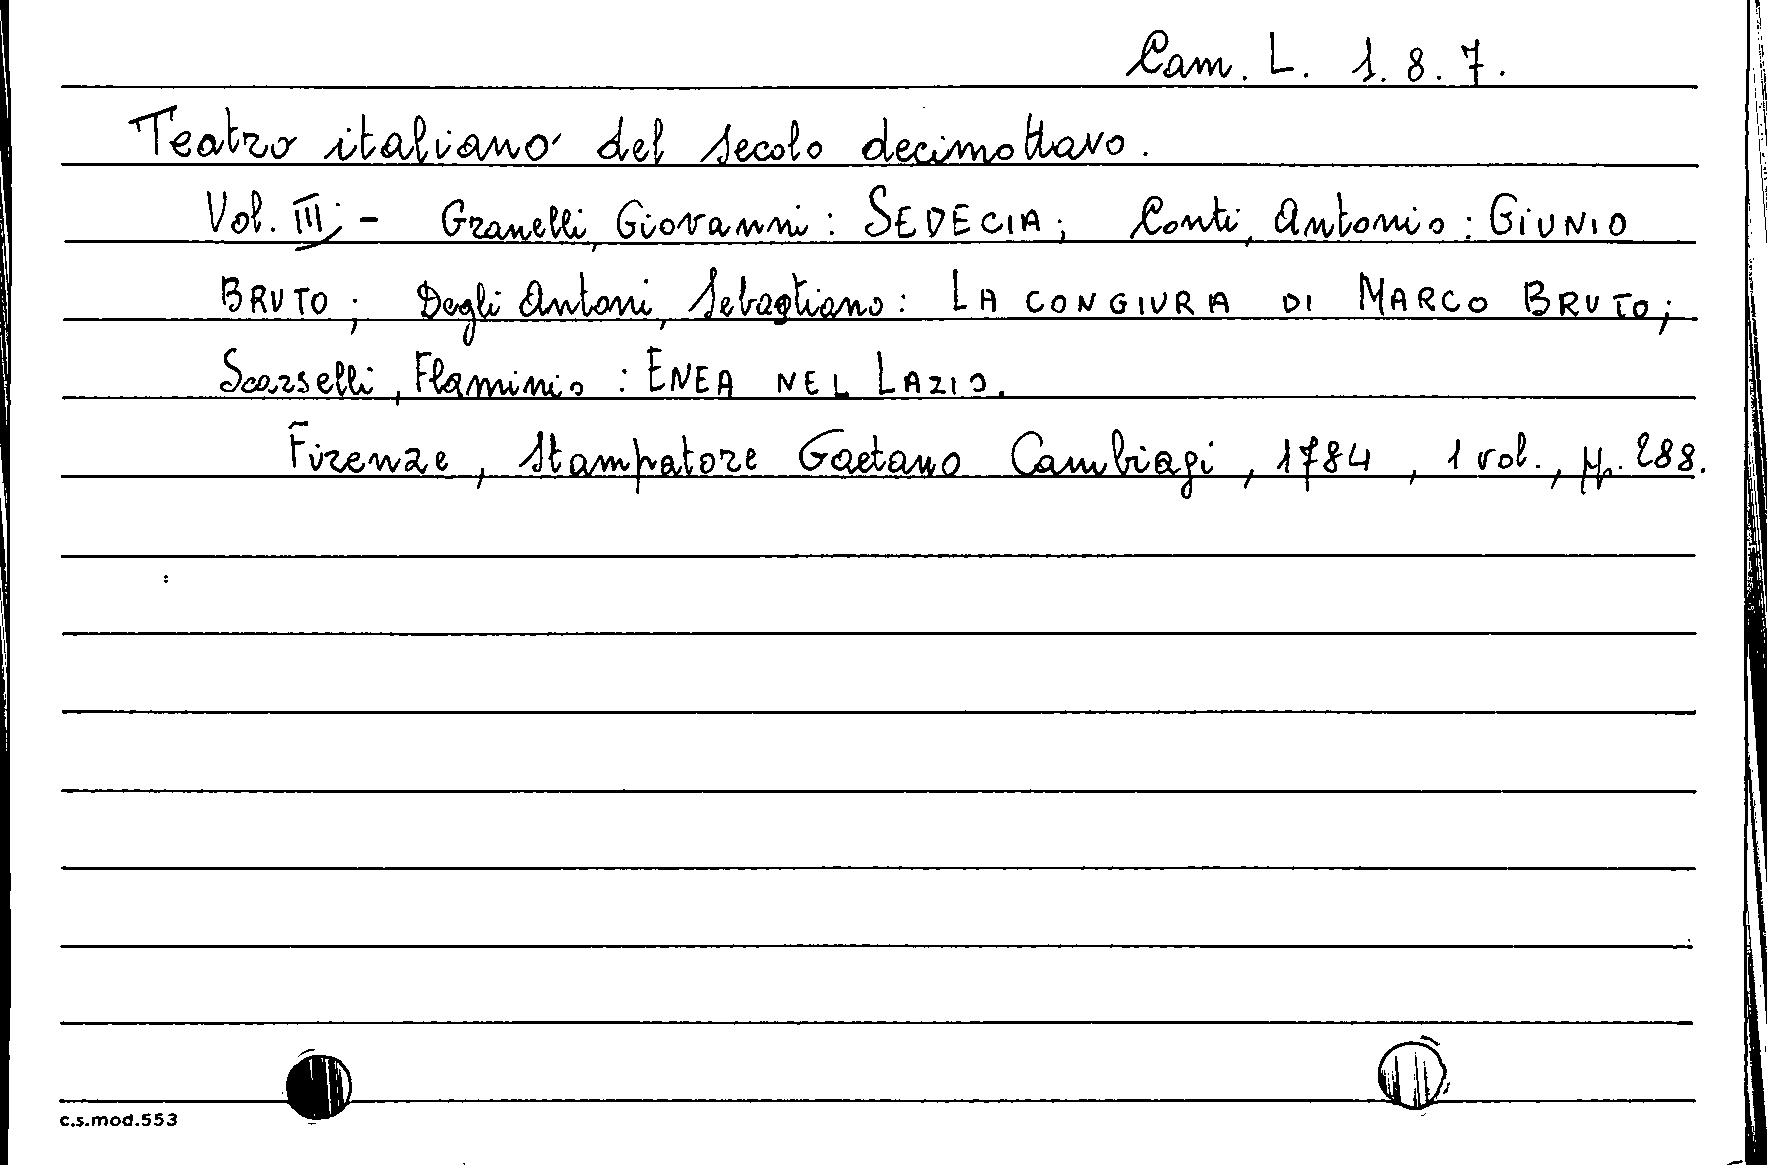 Cam. L. 1. 8. 7.
Teatro italiano del secolo decimottavo.
Vol. III; - Granelli, Giovanni: SEDECIA; Conti, Antonio: GIUNIO
BRUTO; Degli Antoni, Sebastiano: LA CONGIURA DI MARCO BRUTO;
Scarselli, Flaminio: ENEA NEL LAZIO.
Firenze, Stampatore Gaetano Cambiagi, 1784, 1 vol., pp. 288.
c.s.mod.553